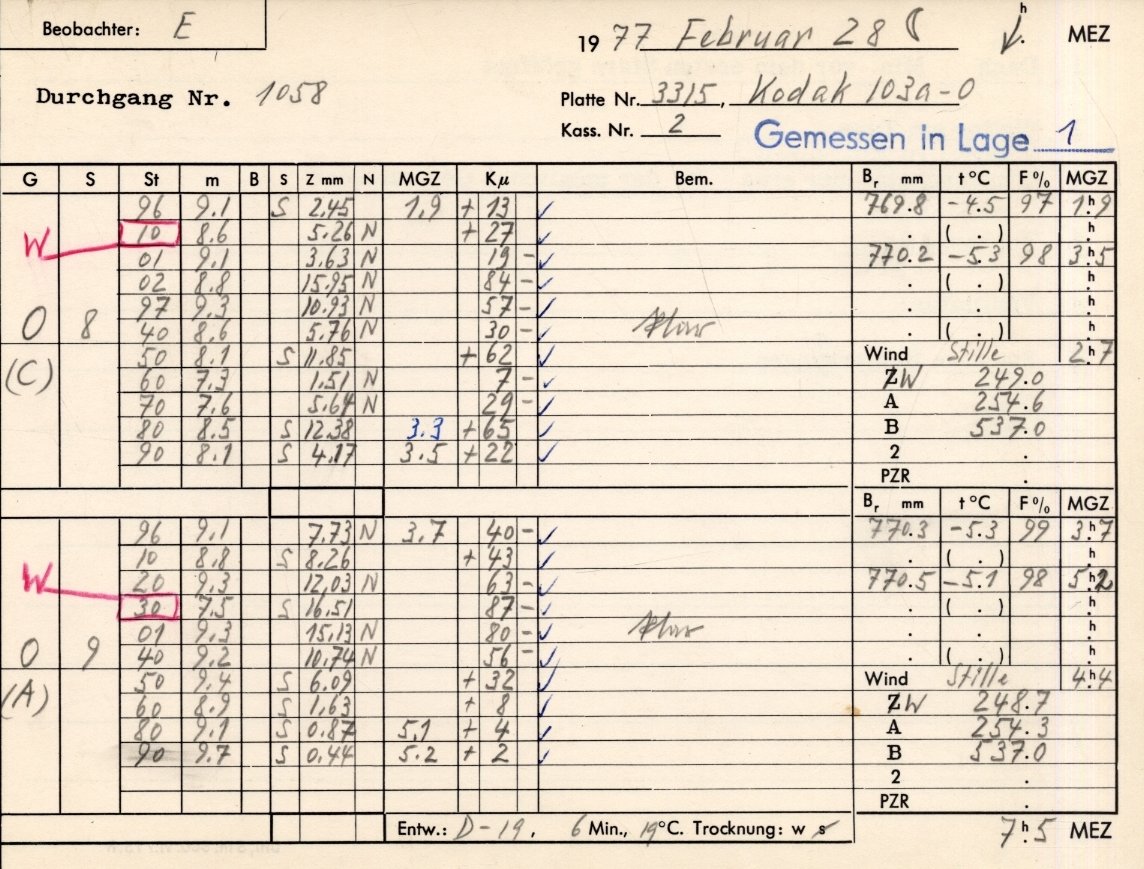 Beobachter: E
19 77 Februar 28 h MEZ
Durchgang Nr. 1058
Platte Nr. 3315, Kodak 103a-0
Kass. Nr. 2
Gemessen in Lage 1
G S St m B S Z mm N MGZ Kμ Bem. Br mm t °C F % MGZ
96 9.1 S 2.45 1.9 + 13 ✓ 769.8 -4.5 97 1h9
W 10 8.6 5.26 N + 27 ✓ . ( . ) h
01 9.1 3.63 N 19 - ✓ 770.2 -5.3 98 3h5
02 8.8 15.95 N 84 - ✓ . ( . ) h
97 9.3 10.93 N 57 - ✓ . . h
O 8 40 8.6 5.76 N 30 - ✓ klar . ( . ) h
(C) 50 8.1 S 11.85 + 62 ✓ Wind Stille 2h7
60 7.3 1.51 N 7 - ✓ ZW 249.0
70 7.6 5.64 N 29 - ✓ A 254.6
80 8.5 S 12.38 3.3 + 65 ✓ B 537.0
90 8.1 S 4.17 3.5 + 22 ✓ 2 .
PZR .
Br mm t °C F % MGZ
96 9.1 7.73 N 3.7 40 - ✓ 770.3 -5.3 99 3h7
10 8.8 S 8.26 + 43 ✓ . ( . ) h
W 20 9.3 12,03 N 63 - ✓ 770.5 -5.1 98 5h2
30 7.5 S 16.51 87 - ✓ . ( . ) h
01 9.3 15.13 N 80 - ✓ klar . . h
O 9 40 9.2 10.74 N 56 - ✓ . ( . ) h
(A) 50 9.4 S 6.09 + 32 ✓ Wind Stille 4h4
60 8.9 S 1.63 + 8 ✓ ZW 248.7
80 9.1 S 0.87 5.1 + 4 ✓ A 254.3
90 9.7 S 0.44 5.2 + 2 ✓ B 537.0
2 .
PZR .
Entw.: D-19, 6 Min., 19°C. Trocknung: w s 7h5 MEZ